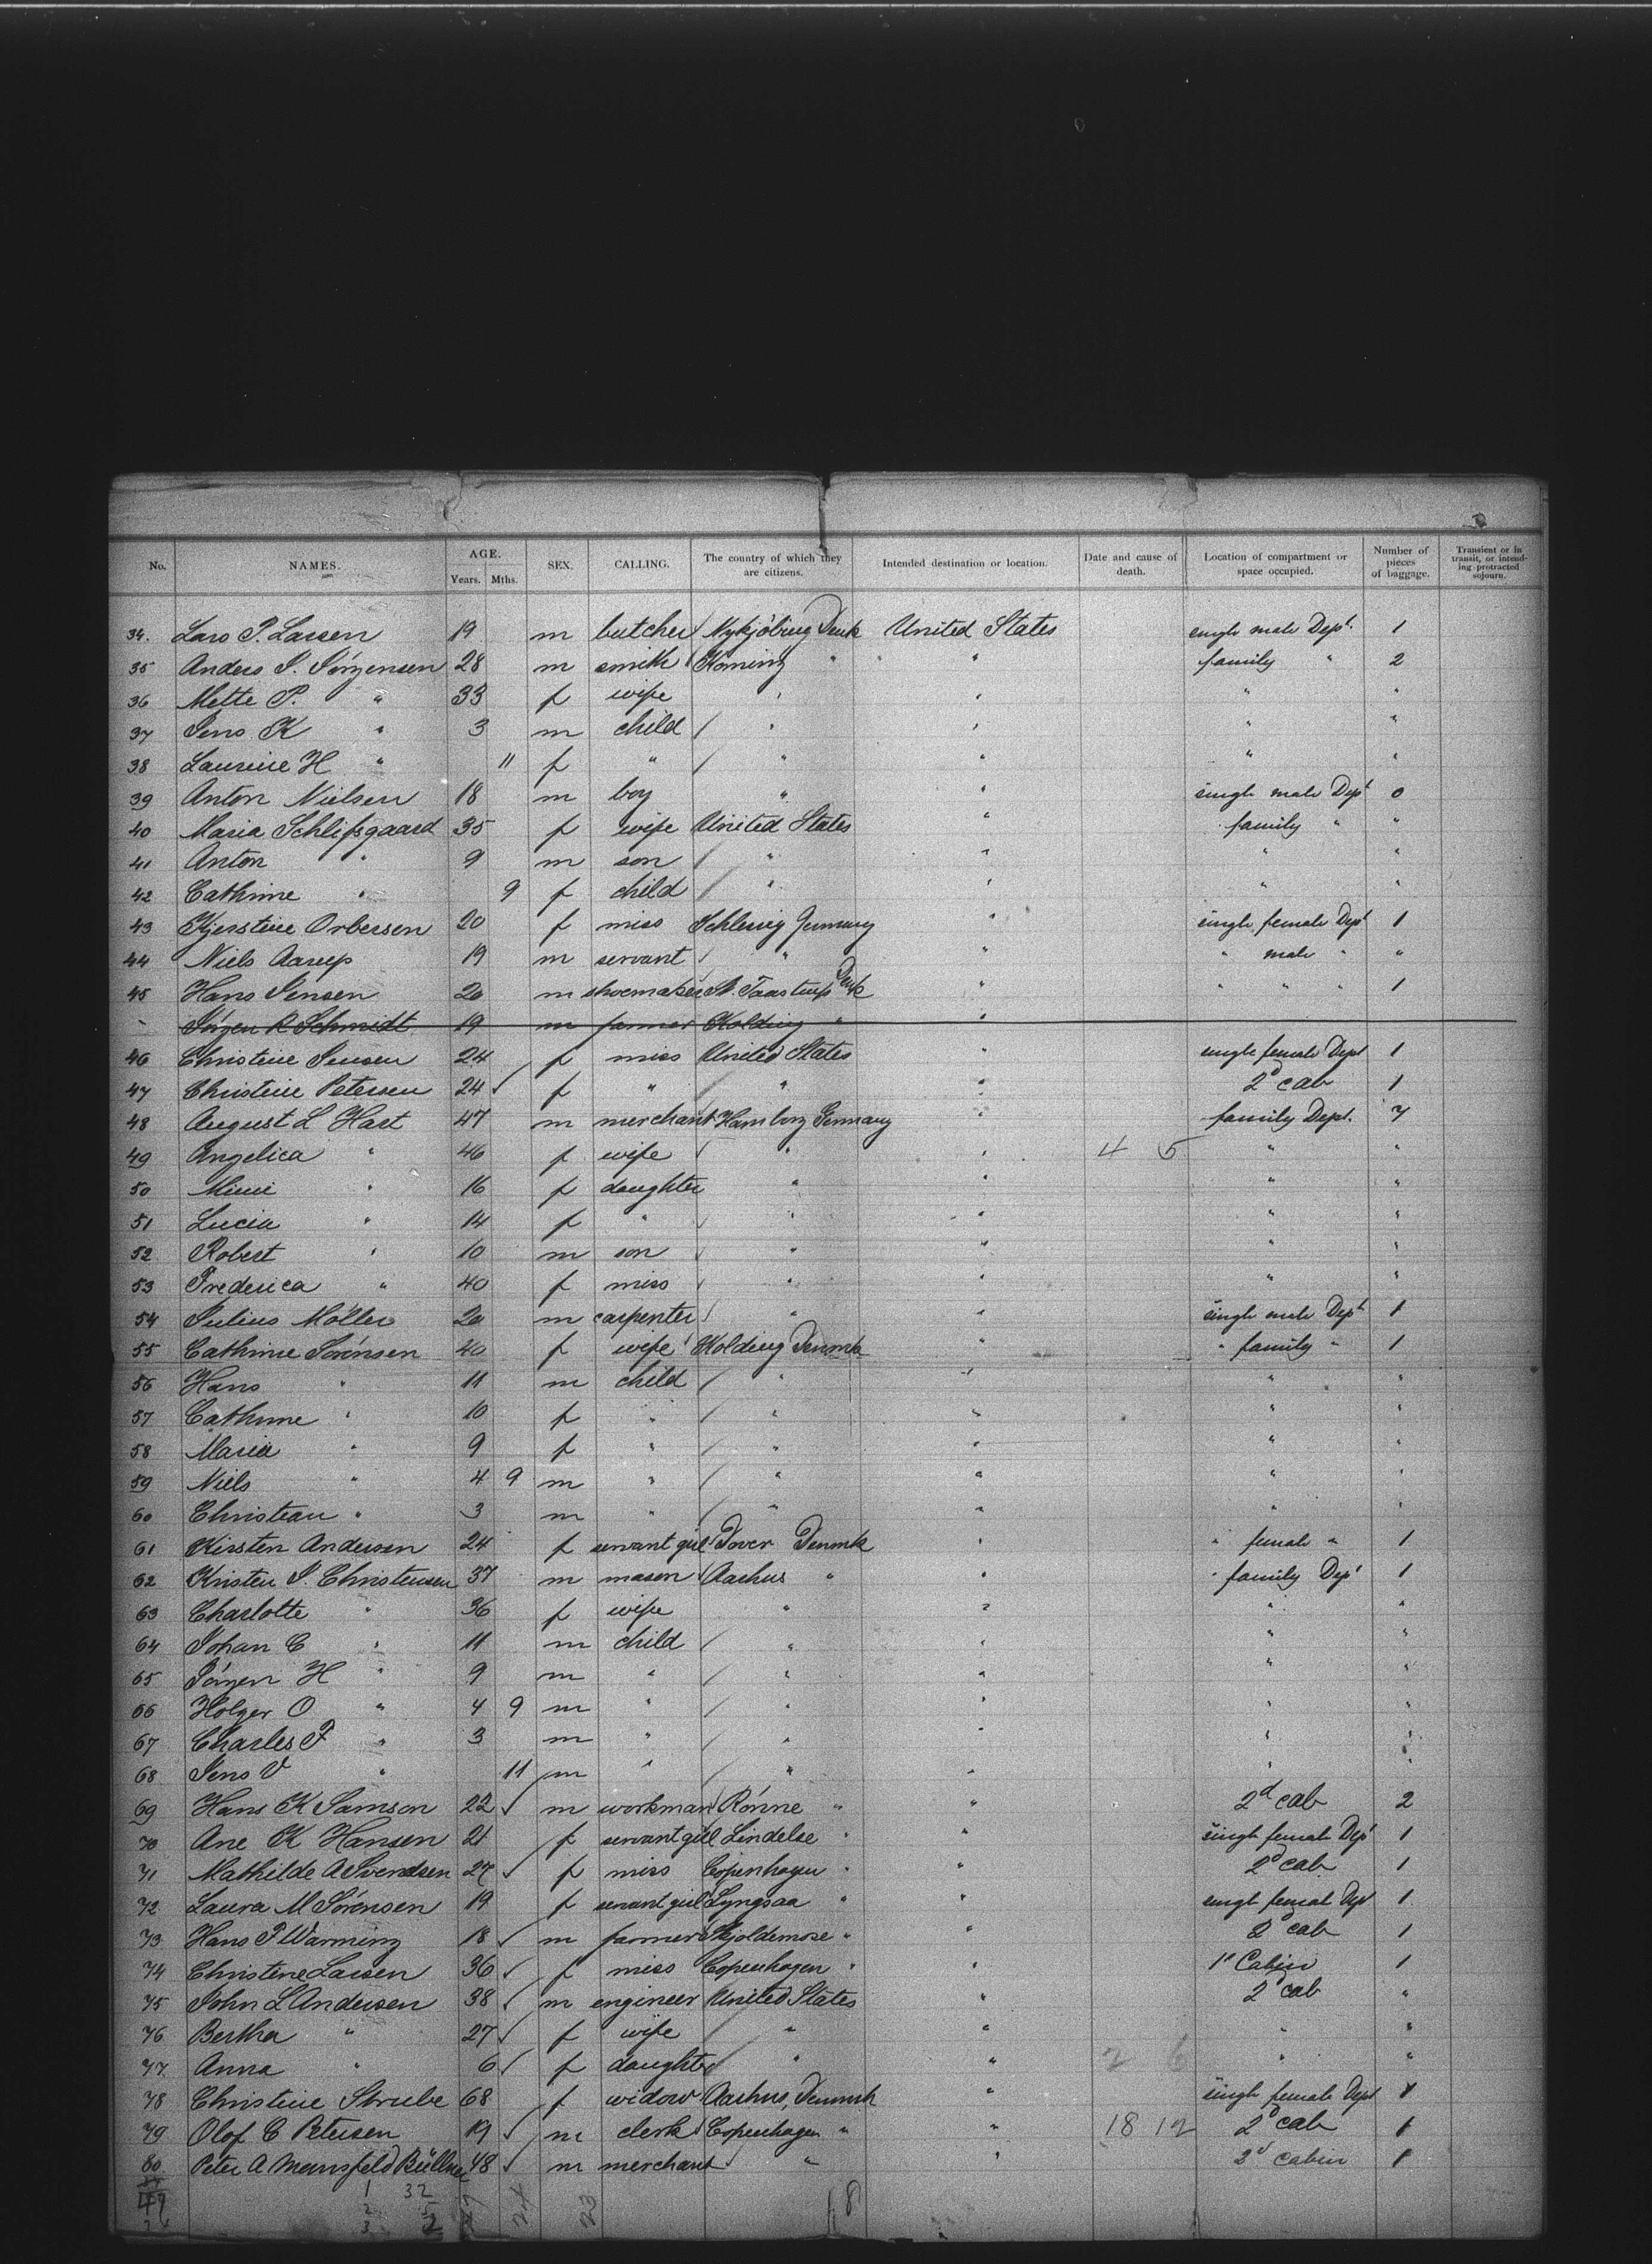 No. NAMES. AGE. Years. Mths. SEX. CALLING. The country of which they are citizens. Intended destination or location. Date and cause of death. Location of compartment or space occupied. Number of pieces of baggage. Transient or in transit, or intending protracted sojourn.
34. Lars P. Larsen 19 m butcher Nykjöbing Denk United States single male Dept. 1
35 Anders S. Sörgensen 28 m smith Horning " " family " 2
36 Mette P. " 33 f wife " " " "
37 Jens K " 3 m child " " " "
38 Laurine H " 11 f " " " " "
39 Anton Nielsen 18 m boy " " single male Dept 0
40 Maria Schlifsgaard 35 f wife United States " family " "
41 Anton " 9 m son " " " "
42 Cathrine " 9 f child " " " "
43 Kjerstine Orbersen 20 f miss Schleswig Germany " single female Dept 1
44 Niels Aarup 19 m servant " " " male " "
45 Hans Jensen 20 m shoemaker N. Taastrup Denk " " " " 1
- Jörgen R Schmidt 19 m farmer Kolding " "
46 Christine Jensen 24 f miss United States " single female Dept 1
47 Christine Petersen 24 f " " " 2d cab 1
48 August L Hart 47 m merchant Hamborg Germany " family Dept. 7
49 Angelica " 46 f wife " " 4 5 " "
50 Mimi " 16 f daughter " " " "
51 Lucia " 14 f " " " " "
52 Robert " 10 m son " " " "
53 Frederica " 40 f miss " " " "
54 Julius Möller 20 m carpenter " " single male Dept 1
55 Cathrine Sörensen 40 f wife Kolding Denmk " " family " 1
56 Hans " 11 m child " " " "
57 Cathrine " 10 f " " " " "
58 Maria " 9 f " " " " "
59 Niels " 4 9 m " " " " "
60 Christian " 3 m " " " " "
61 Kirsten Andersen 24 f servant girl Dover Denmk " " female " 1
62 Kristen S. Christensen 37 m mason Aarhus " " " family Dept 1
63 Charlotte " 36 f wife " " " "
64 Johan C " 11 m child " " " "
65 Jörgen H " 9 m " " " " "
66 Holger O " 4 9 m " " " " "
67 Charles F " 3 m " " " " "
68 Jens V " 11 m " " " " "
69 Hans K Samson 22 m workman Rönne " " 2d cab 2
70 Ane K Hansen 21 f servant girl Lindelse " " single female Dept 1
71 Mathilde A Svendsen 27 f miss Copenhagen " " 2d cab 1
72 Laura M Sörensen 19 f servant girl Lyngsaa " " single female Dept 1
73 Hans P Warming 18 m farmer Skjoldemose " " 2d cab 1
74 Christine Larsen 36 f miss Copenhagen " " 1st Cabin 1
75 John L Andersen 38 m engineer United States " 2d cab "
76 Bertha " 27 f wife " " " "
77 Anna " 6 f daughter " " 2 6 " "
78 Christine Strube 68 f widow Aarhus, Denmk " single female Dept 1
79 Olof C Petersen 19 m clerk Copenhagen " " 18 12 2d cab 1
80 Peter A Mansfeld Büllner 48 m merchant " " 2d cabin 1
49 1 32
2 5
3 2 24 23 18